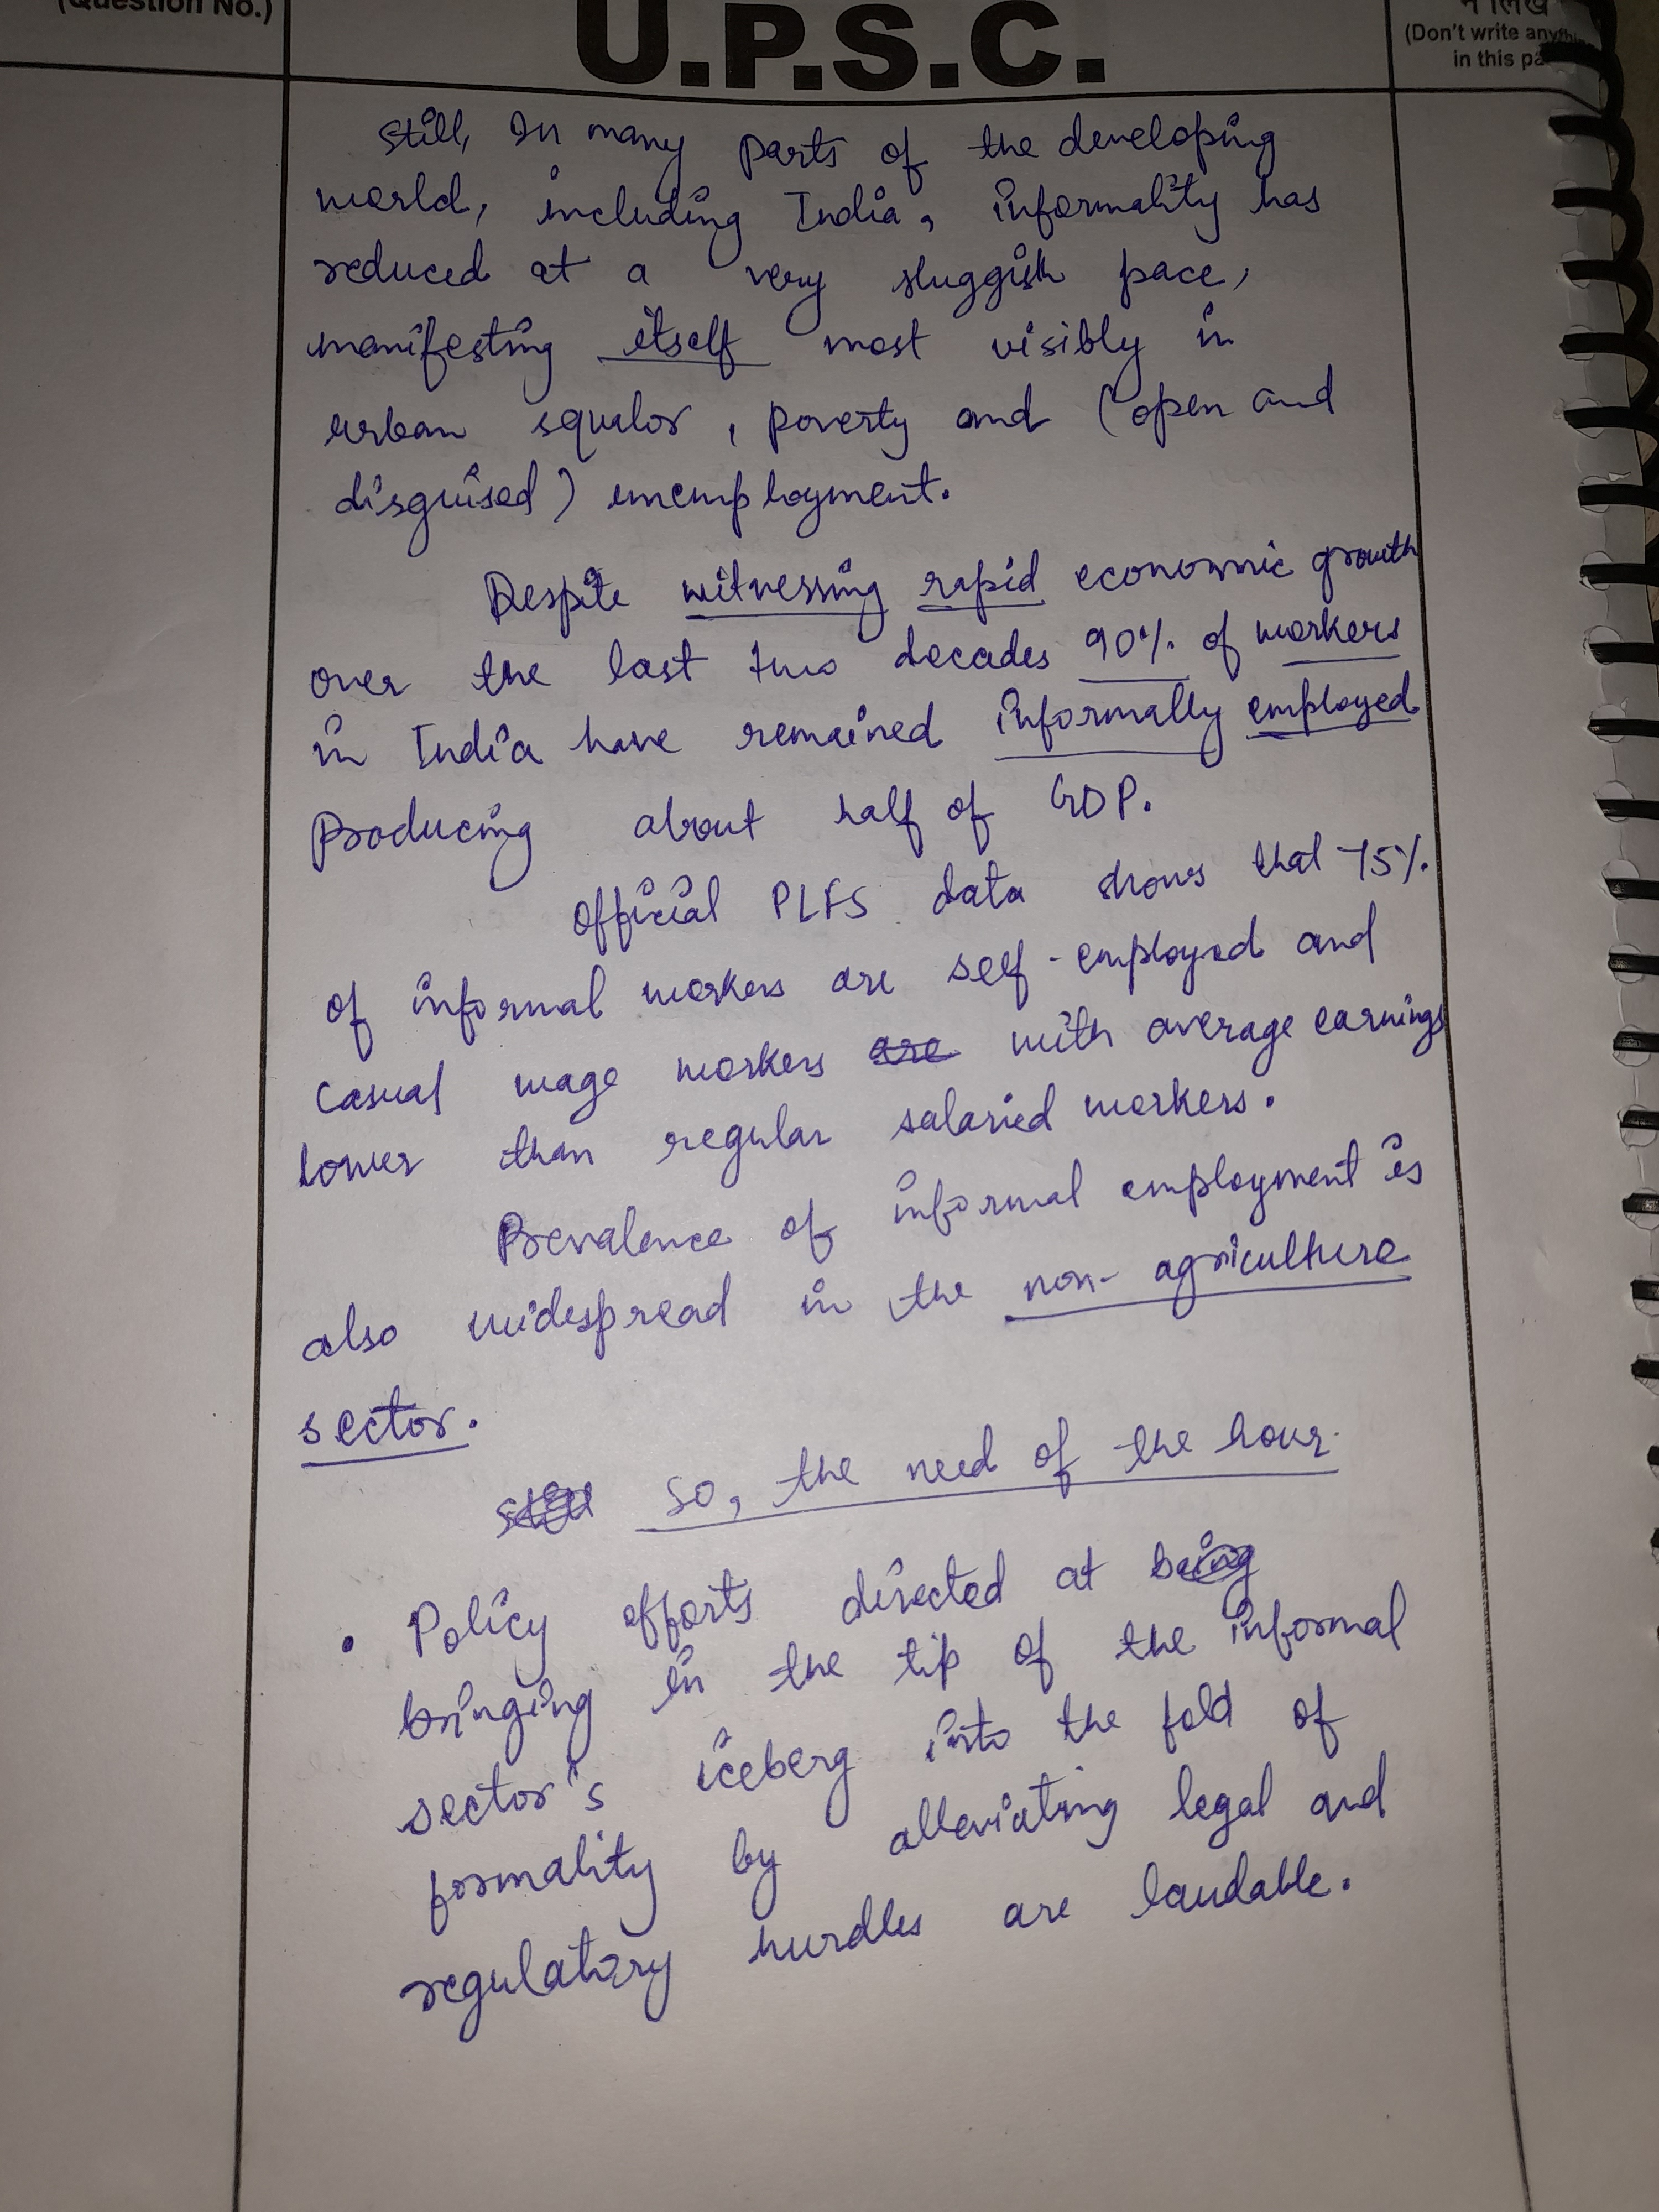 (Question No.)
U.P.S.C.
न लिखें
(Don't write anything
in this pa
Still, In many parts of the developing
world, including India, informality has
reduced at a very sluggish pace,
manifesting itself most visibly in
urban squalor, poverty and (open and
disguised) unemployment.
Despite witnessing rapid economic growth
over the last two decades 90% of workers
in India have remained informally employed
Producing about half of GDP.
Official PLFS data shows that 75%
of informal workers are self-employed and
Casual wage workers are with average earnings
lower than regular salaried workers.
Prevalence of informal employment is
also widespread in the non-agriculture
sector.
So, the need of the hour.
• Policy efforts directed at being
bringing in the tip of the informal
sector's iceberg into the fold of
formality by alleviating legal and
regulatory hurdles are laudable.